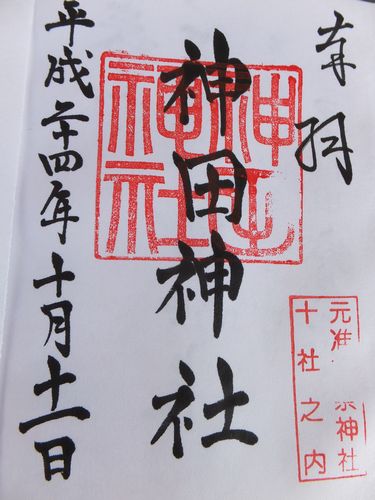 奉拝
神田神社
平成二十四年十月十一日
神田
神社
元准 神社
十社之内